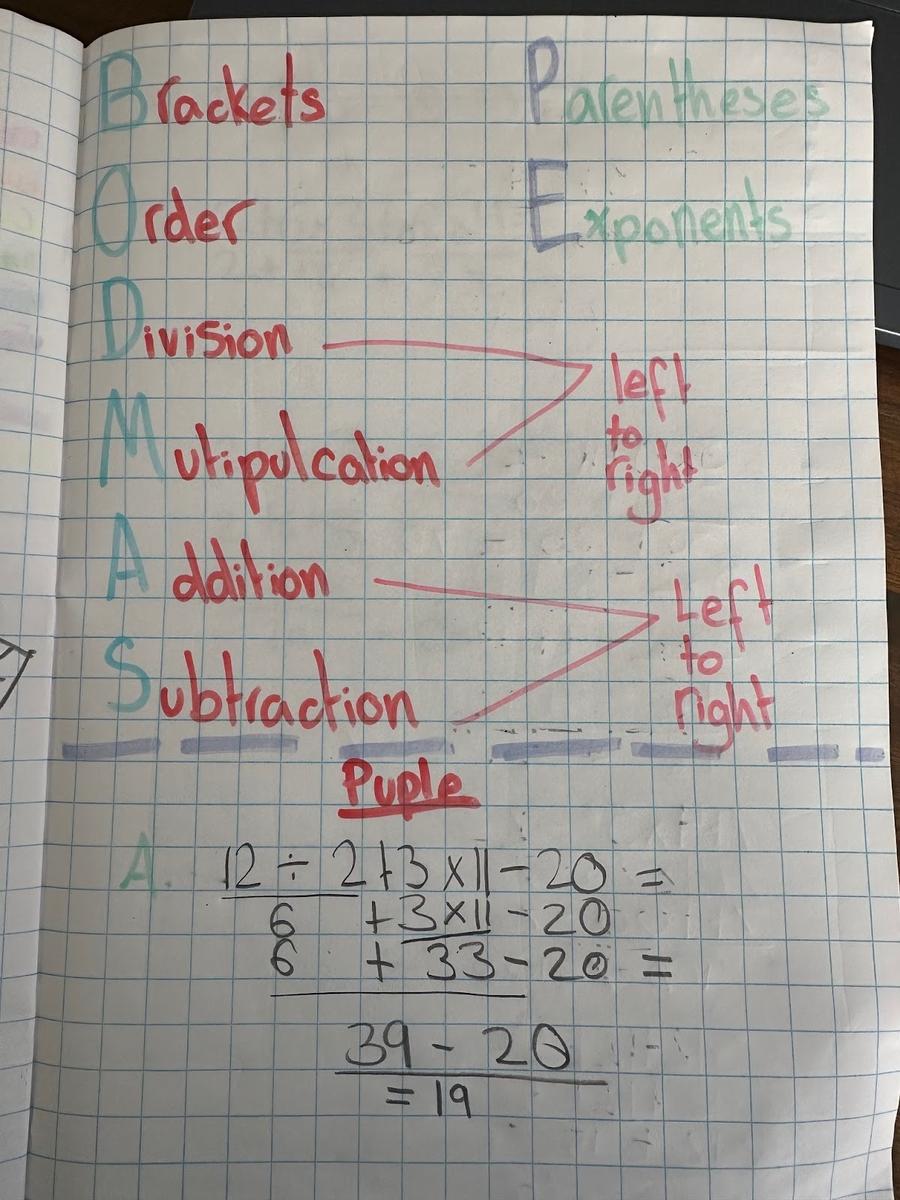 Brackets Parentheses
Order Exponents
Division
left
to
right
Mutipulcation
Addition
Left
to
right
Subtraction
Puple
A. 12 ÷ 2+3 x11-20 =
6 +3x11-20
6 + 33-20 =
39 - 20
= 19